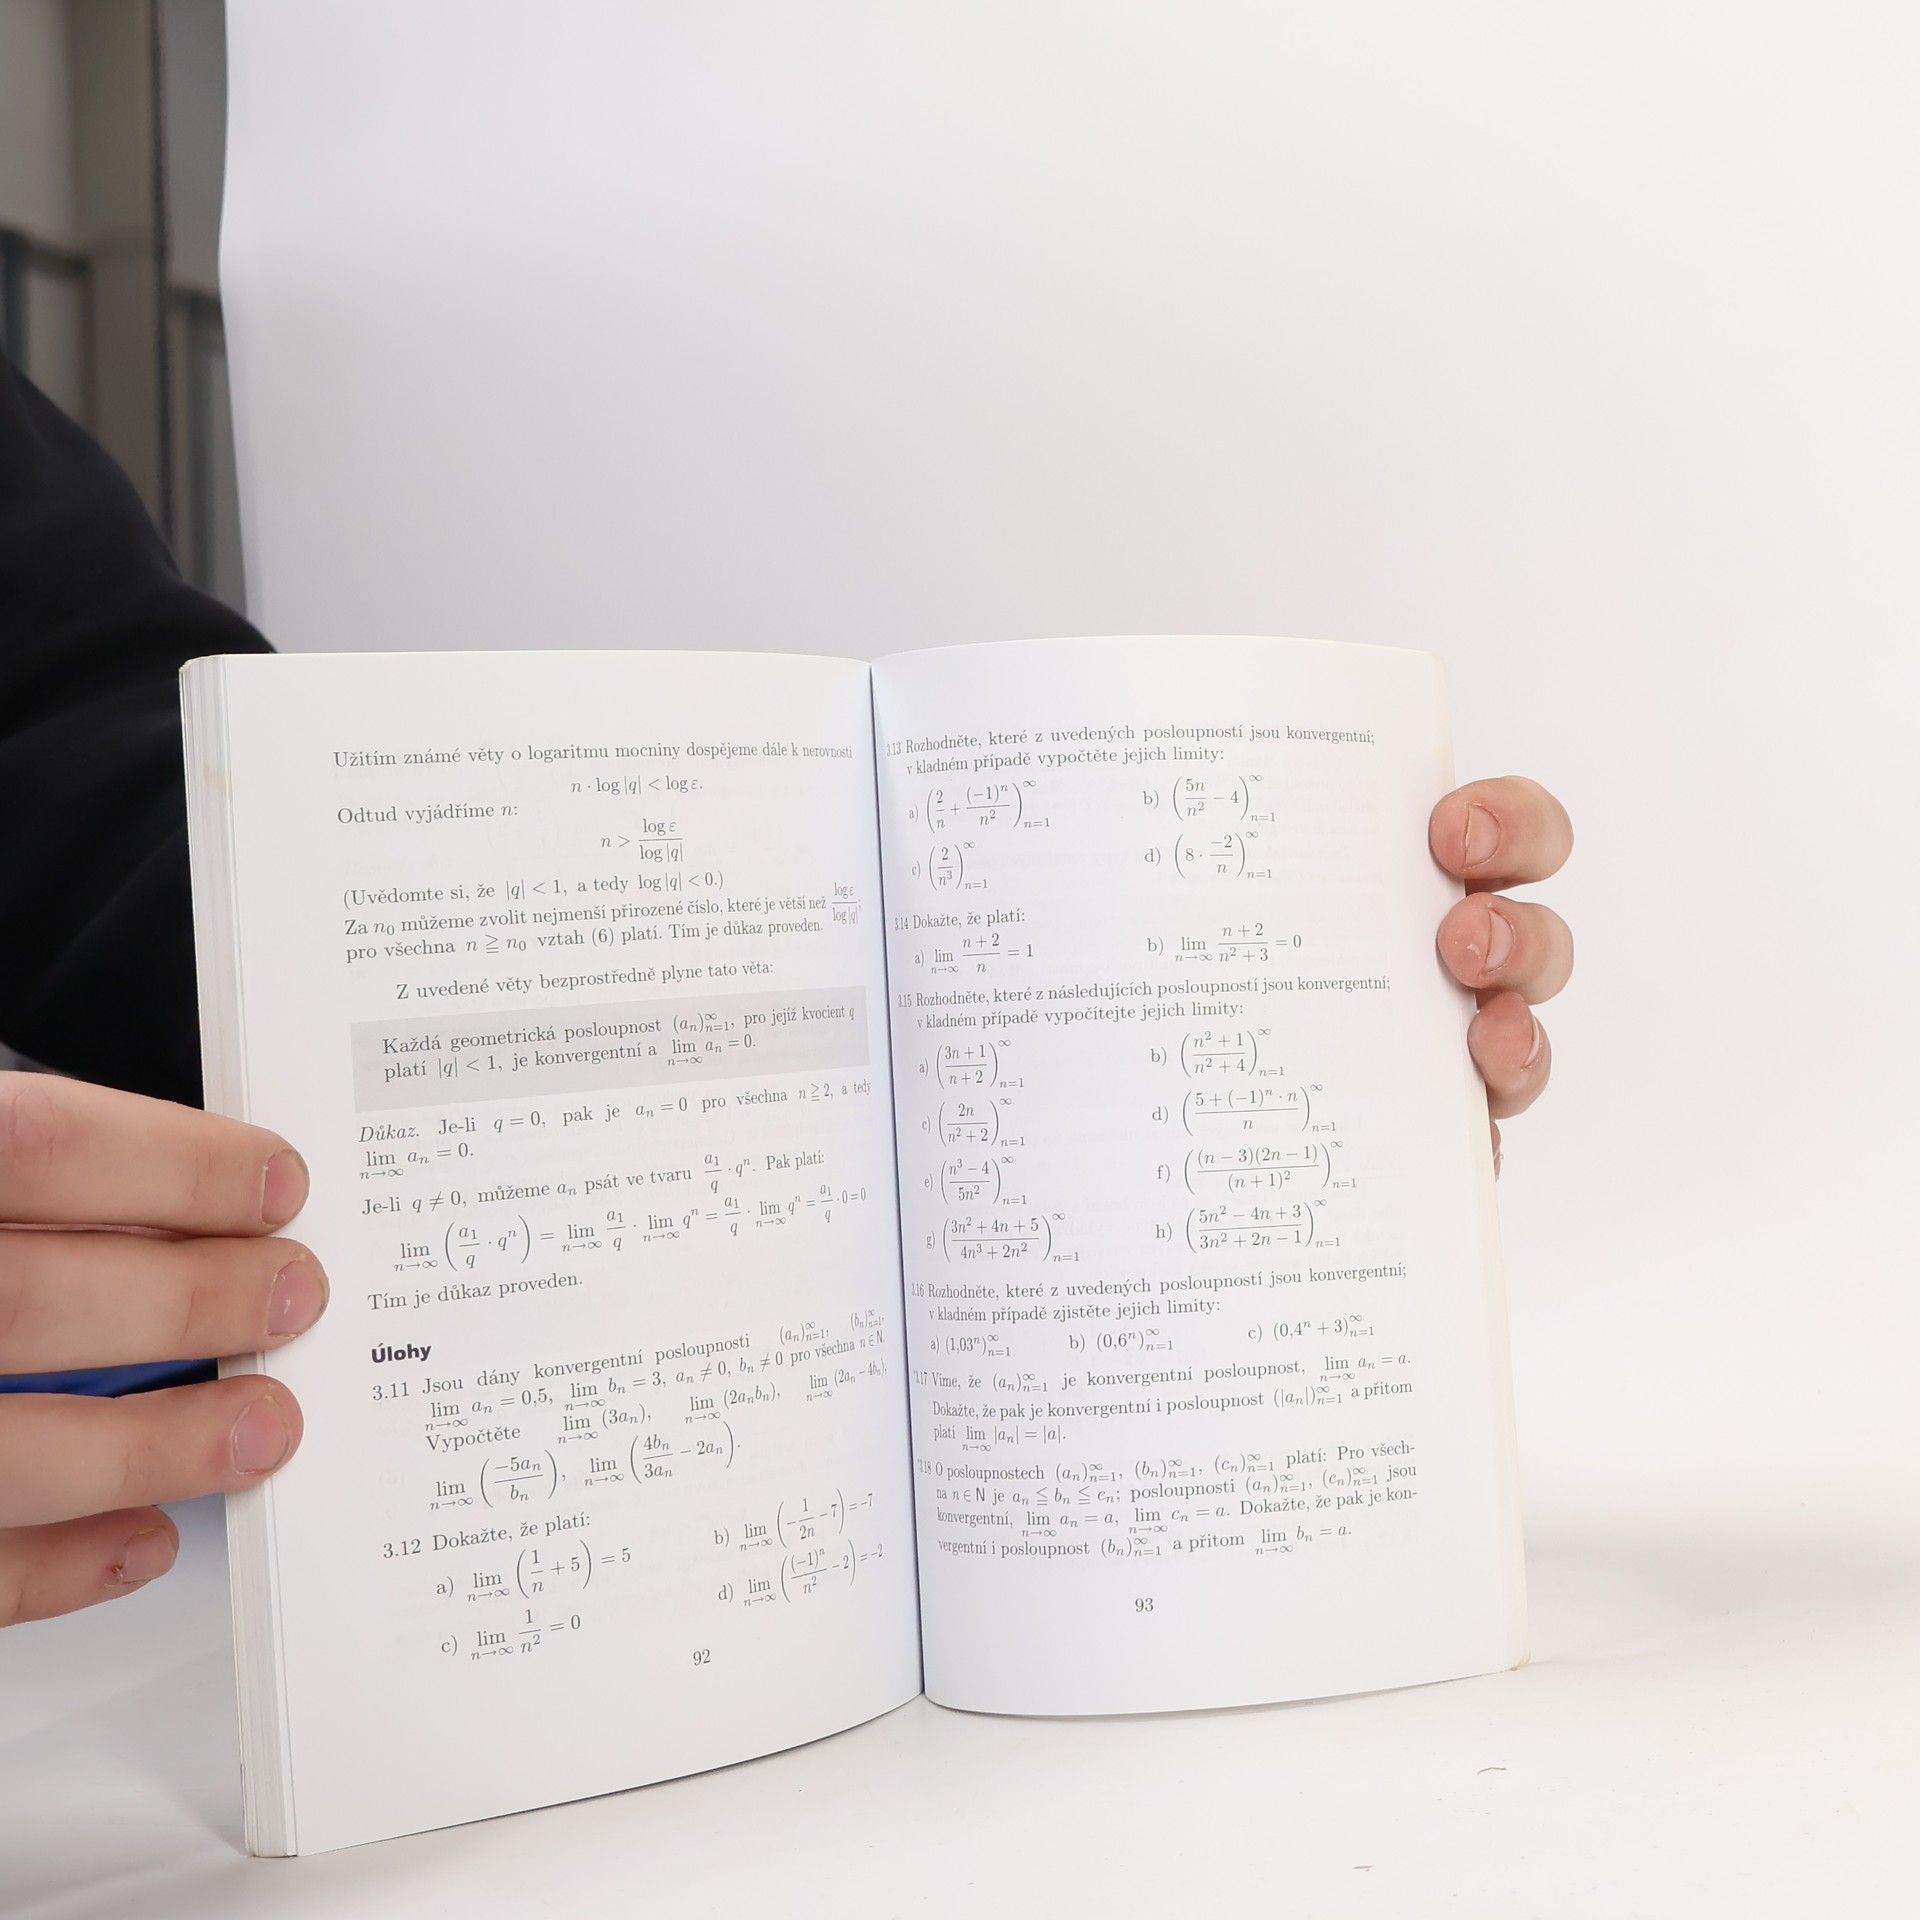 Užitím známé věty o logaritmu mocniny dospějeme dále k nerovnosti
n · log |q| < log ε.
Odtud vyjádříme n:
n > log ε / log |q|
(Uvědomte si, že |q| < 1, a tedy log |q| < 0.)
Za n₀ můžeme zvolit nejmenší přirozené číslo, které je větší než log ε / log |q|;
pro všechna n ≧ n₀ vztah (6) platí. Tím je důkaz proveden.
Z uvedené věty bezprostředně plyne tato věta:
Každá geometrická posloupnost (aₙ)∞ₙ₌₁, pro jejíž kvocient q
platí |q| < 1, je konvergentní a lim n→∞ aₙ = 0.
Důkaz. Je-li q = 0, pak je aₙ = 0 pro všechna n ≧ 2, a tedy
lim n→∞ aₙ = 0.
Je-li q ≠ 0, můžeme aₙ psát ve tvaru a₁/q · qⁿ. Pak platí:
lim n→∞ (a₁/q · qⁿ) = lim n→∞ a₁/q · lim n→∞ qⁿ = a₁/q · lim n→∞ qⁿ = a₁/q · 0 = 0
Tím je důkaz proveden.
Úlohy
3.11 Jsou dány konvergentní posloupnosti (aₙ)∞ₙ₌₁, (bₙ)∞ₙ₌₁,
lim n→∞ aₙ = 0,5, lim n→∞ bₙ = 3, aₙ ≠ 0, bₙ ≠ 0 pro všechna n ∈ N.
Vypočtěte lim n→∞ (3aₙ), lim n→∞ (2aₙbₙ), lim n→∞ (2aₙ − 4bₙ),
lim n→∞ (−5aₙ / bₙ), lim n→∞ (4bₙ / 3aₙ − 2aₙ).
3.12 Dokažte, že platí:
a) lim n→∞ (1/n + 5) = 5 b) lim n→∞ (−1/2n − 7) = −7
c) lim n→∞ 1/n² = 0 d) lim n→∞ ((−1)ⁿ/n² − 2) = −2
92
3.13 Rozhodněte, které z uvedených posloupností jsou konvergentní;
v kladném případě vypočtěte jejich limity:
a) (2/n + (−1)ⁿ/n²)∞ₙ₌₁ b) (5n/n² − 4)∞ₙ₌₁
c) (2/n³)∞ₙ₌₁ d) (8 · −2/n)∞ₙ₌₁
3.14 Dokažte, že platí:
a) lim n→∞ (n + 2)/n = 1 b) lim n→∞ (n + 2)/(n² + 3) = 0
3.15 Rozhodněte, které z následujících posloupností jsou konvergentní;
v kladném případě vypočítejte jejich limity:
a) ((3n + 1)/(n + 2))∞ₙ₌₁ b) ((n² + 1)/(n² + 4))∞ₙ₌₁
c) (2n/(n² + 2))∞ₙ₌₁ d) ((5 + (−1)ⁿ · n)/n)∞ₙ₌₁
e) ((n³ − 4)/5n²)∞ₙ₌₁ f) ((n − 3)(2n − 1)/(n + 1)²)∞ₙ₌₁
g) ((3n² + 4n + 5)/(4n³ + 2n²))∞ₙ₌₁ h) ((5n² − 4n + 3)/(3n² + 2n − 1))∞ₙ₌₁
3.16 Rozhodněte, které z uvedených posloupností jsou konvergentní;
v kladném případě zjistěte jejich limity:
a) (1,03ⁿ)∞ₙ₌₁ b) (0,6ⁿ)∞ₙ₌₁ c) (0,4ⁿ + 3)∞ₙ₌₁
17 Víme, že (aₙ)∞ₙ₌₁ je konvergentní posloupnost, lim n→∞ aₙ = a.
Dokažte, že pak je konvergentní i posloupnost (|aₙ|)∞ₙ₌₁ a přitom
platí lim n→∞ |aₙ| = |a|.
18 O posloupnostech (aₙ)∞ₙ₌₁, (bₙ)∞ₙ₌₁, (cₙ)∞ₙ₌₁ platí: Pro všech-
na n ∈ N je aₙ ≦ bₙ ≦ cₙ; posloupnosti (aₙ)∞ₙ₌₁, (cₙ)∞ₙ₌₁ jsou
konvergentní, lim n→∞ aₙ = a, lim n→∞ cₙ = a. Dokažte, že pak je kon-
vergentní i posloupnost (bₙ)∞ₙ₌₁ a přitom lim n→∞ bₙ = a.
93